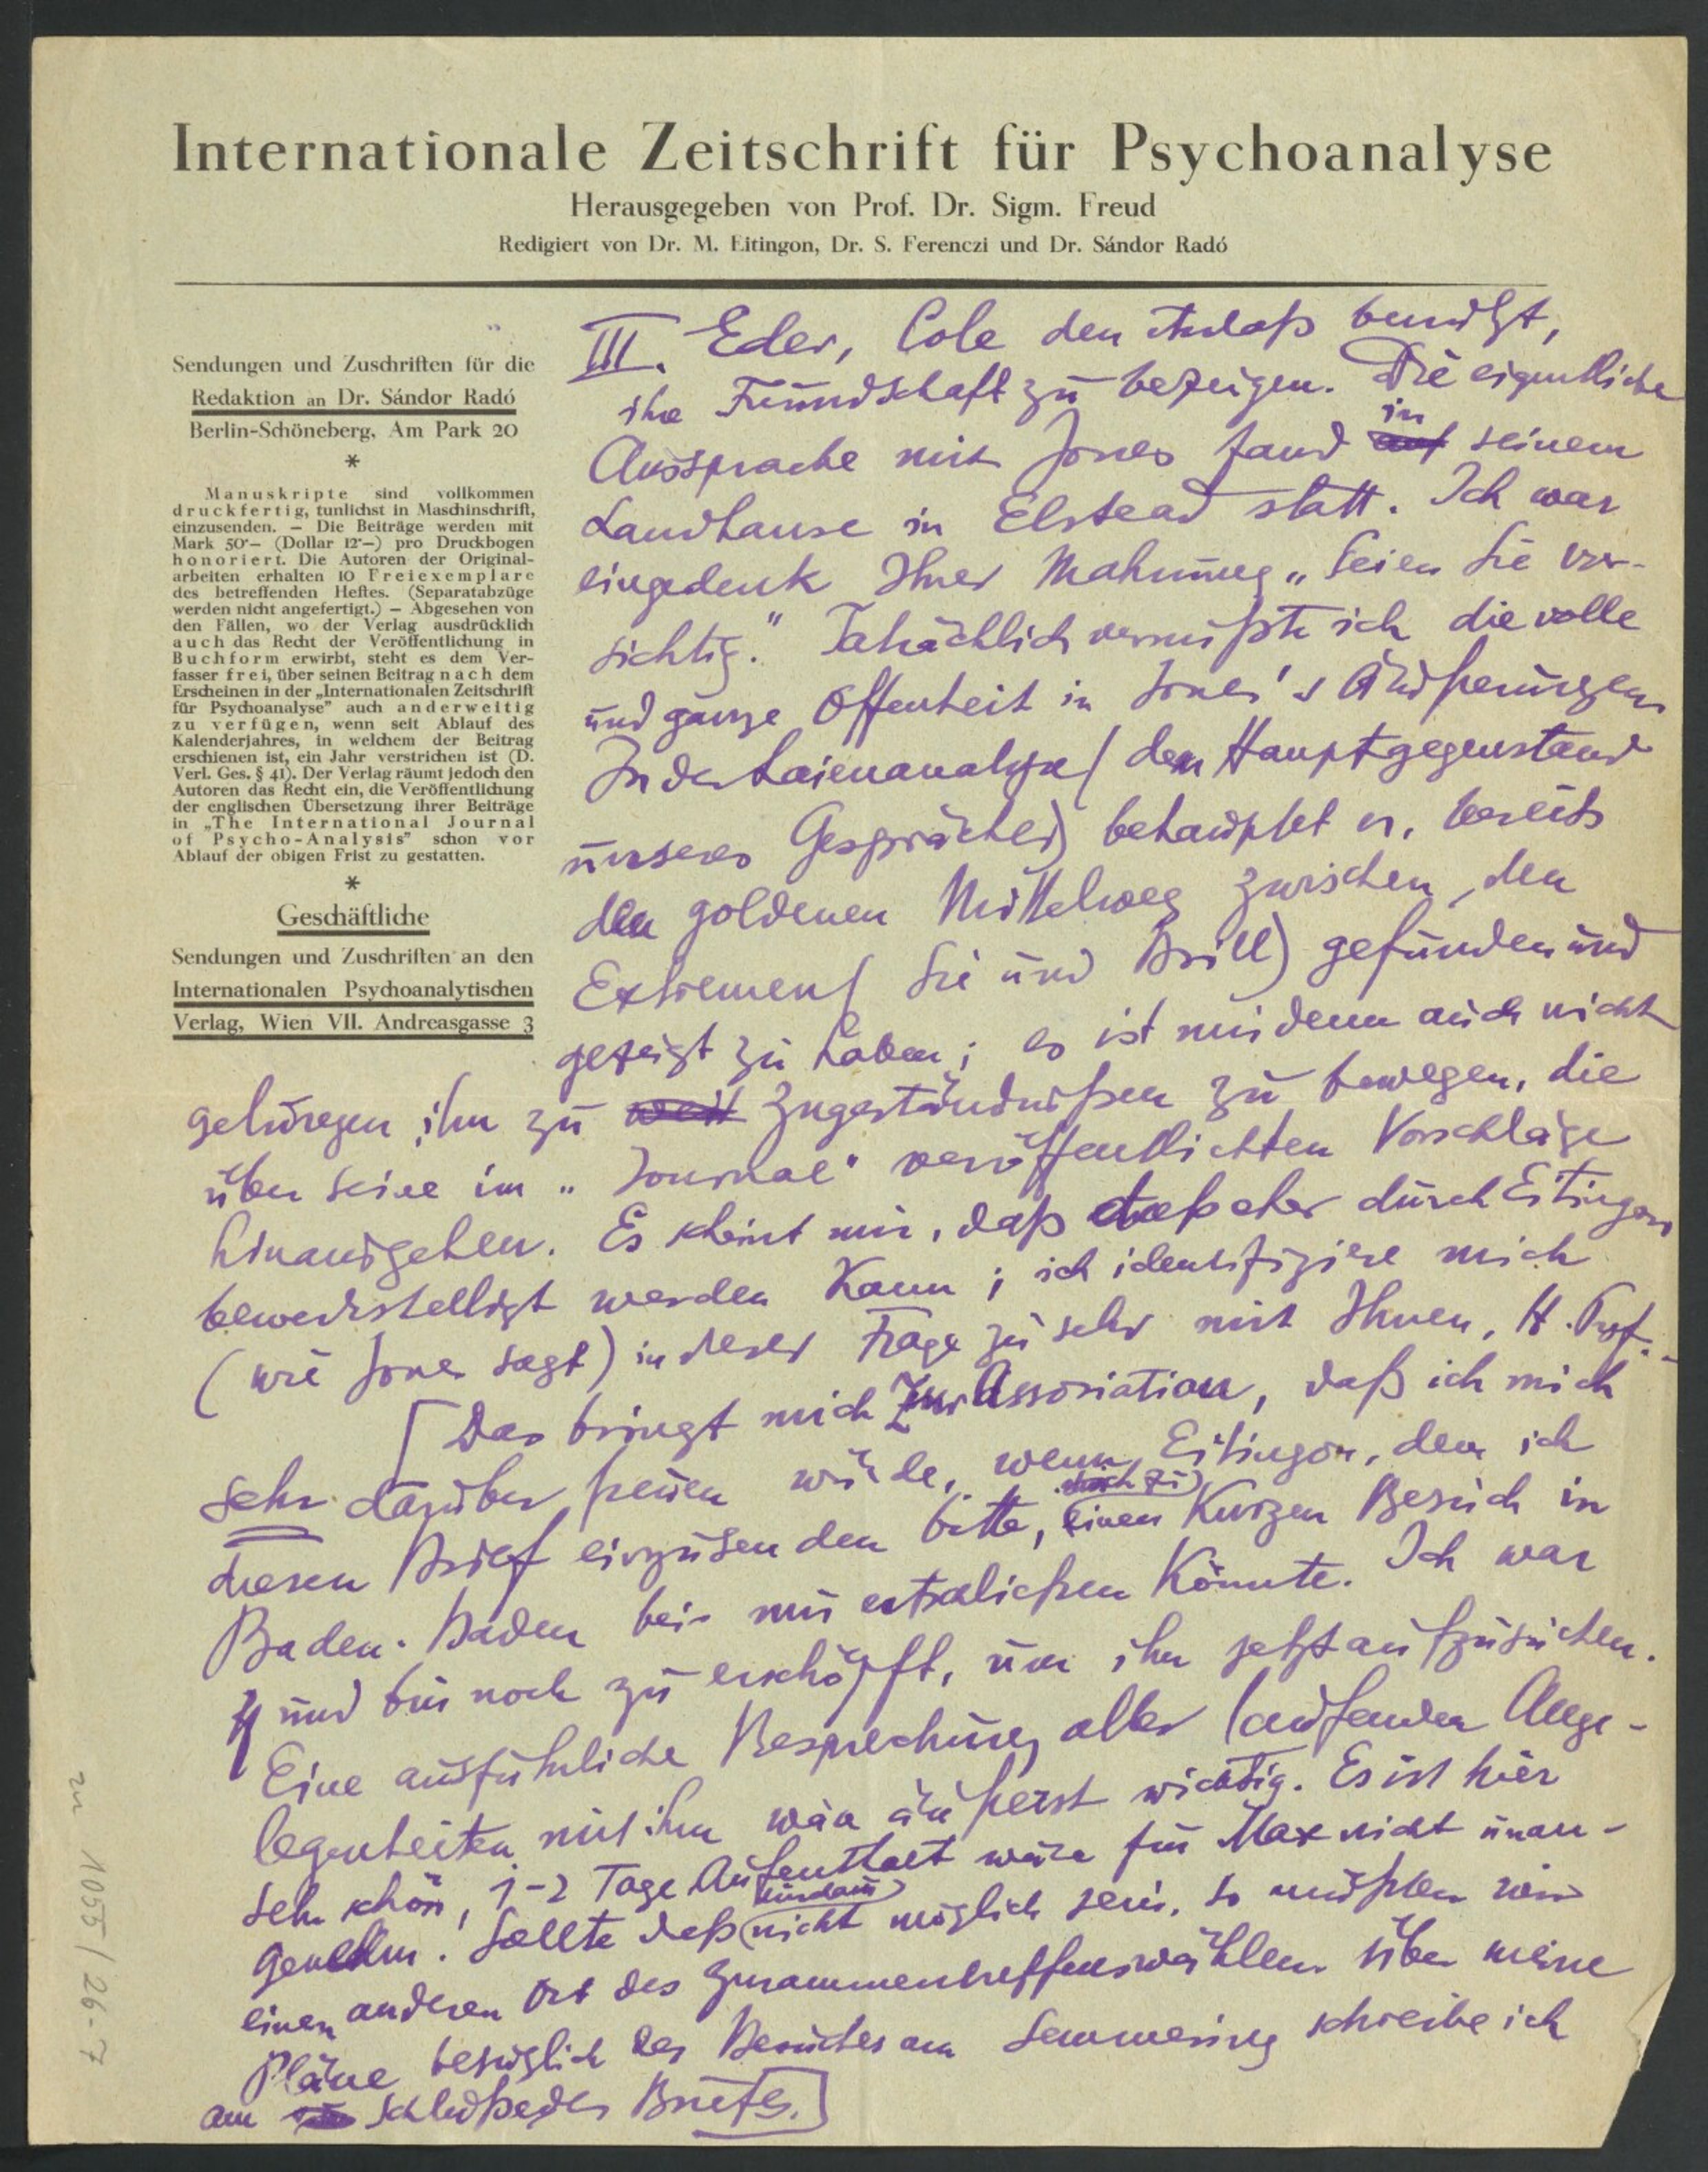 Internationale Zeitschrift für Psychoanalyse
Herausgegeben von Prof. Dr. Sigm. Freud
Redigiert von Dr. M. Eitingon, Dr. S. Ferenczi und Dr. Sándor Radó
Sendungen und Zuschriften für die
Redaktion an Dr. Sándor Radó
Berlin-Schöneberg, Am Park 20
*
Manuskripte sind vollkommen
druckfertig, tunlichst in Maschinschrift,
einzusenden. — Die Beiträge werden mit
Mark 50·— (Dollar 12·—) pro Druckbogen
honoriert. Die Autoren der Original-
arbeiten erhalten 10 Freiexemplare
des betreffenden Heftes. (Separatabzüge
werden nicht angefertigt.) — Abgesehen von
den Fällen, wo der Verlag ausdrücklich
auch das Recht der Veröffentlichung in
Buchform erwirbt, steht es dem Ver-
fasser frei, über seinen Beitrag nach dem
Erscheinen in der „Internationalen Zeitschrift
für Psychoanalyse” auch anderweitig
zu verfügen, wenn seit Ablauf des
Kalenderjahres, in welchem der Beitrag
erschienen ist, ein Jahr verstrichen ist (D.
Verl. Ges. § 41). Der Verlag räumt jedoch den
Autoren das Recht ein, die Veröffentlichung
der englischen Übersetzung ihrer Beiträge
in „The International Journal
of Psycho-Analysis” schon vor
Ablauf der obigen Frist zu gestatten.
*
Geschäftliche
Sendungen und Zuschriften an den
Internationalen Psychoanalytischen
Verlag, Wien VII. Andreasgasse 3
III. Eder, Cole den Anlaß benützt,
ihre Freundschaft zu bezeigen. Die eigentliche
Aussprache mit Jones fand auf in seinem
Landhause in Elstead statt. Ich war
eingedenk Ihrer Mahnung „Seien Sie vor-
sichtig.” Tatsächlich vermißte ich die volle
und ganze Offenheit in Jones's Äußerungen
In der Laienanalyse (dem Hauptgegenstand
unseres Gespräches) behauptet er, bereits
den goldenen Mittelweg zwischen den
Extremen (Sie und Brill) gefunden und
gezeigt zu haben; es ist mir denn auch nicht
gelungen, ihn zu weit Zugeständnißen zu bewegen, die
über seine im „Journal” veröffentlichten Vorschläge
hinausgehen. Es scheint mir, daß dieß eher durch Eitingon
bewerkstelligt werden kann; ich identifiziere mich
(wie Jones sagt) in dieser Frage zu sehr mit Ihnen, H. Prof.
[Das bringt mich zur Assoziation, daß ich mich
sehr darüber freuen würde, wenn Eitingon, dem ich
diesen Brief einzusenden bitte, einen kurzen Besuch in
Baden-Baden bei mir entschließen könnte. Ich war
und bin noch zu erschöpft, um ihn jetzt aufzusuchen.
Eine ausführliche Besprechung aller laufenden Ange-
legenheiten mit ihm wäre äußerst wichtig. Es ist hier
sehr schön, 1-2 Tage Aufenthalt wäre für Max nicht unan-
genehm. Sollte dieß nicht möglich sein, so müßten wir
einen anderen Ort des Zusammentreffens wählen. Über meine
Pläne bezüglich des Besuches am Semmering schreibe ich
am Schluße des Briefes.]
zu 1055/26-7